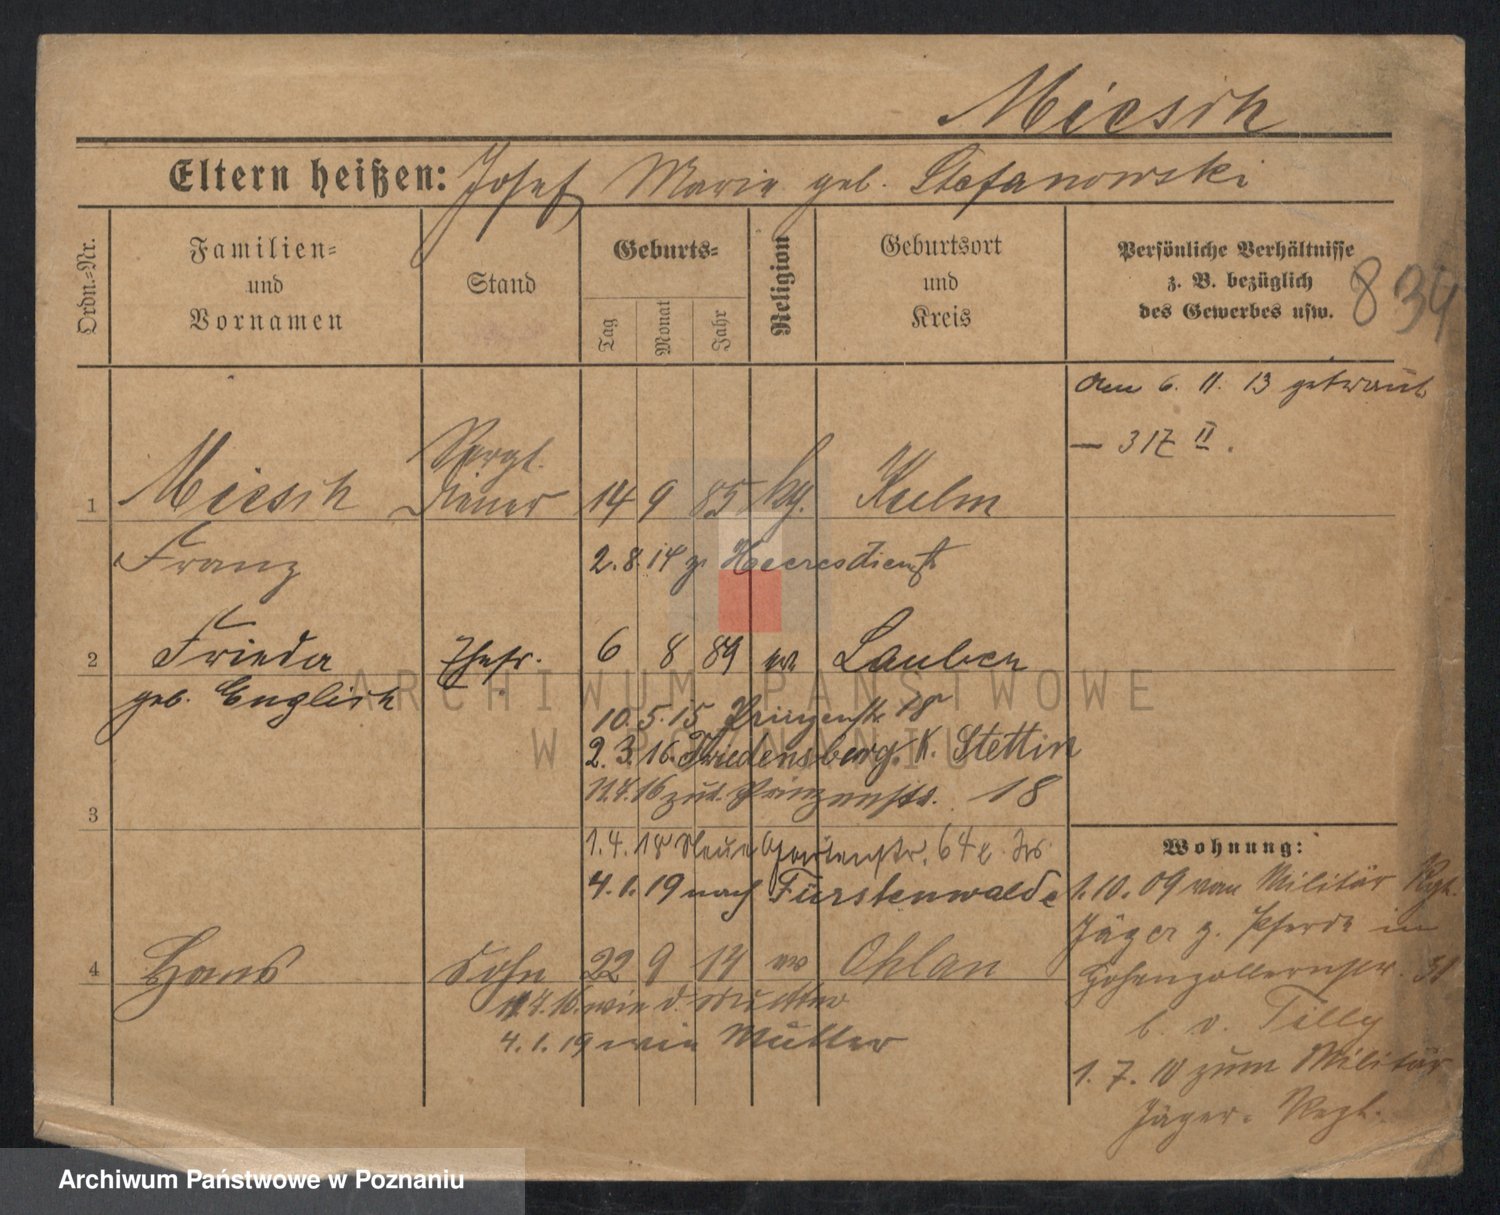 Miesik
Eltern heißen: Josef Marie geb. Stefanowski
Ordn.=Nr.
Familien=
und
Vornamen
Stand
Geburts=
Tag
Monat
Jahr
Religion
Geburtsort
und
Kreis
Persönliche Verhältnisse
z. B. bezüglich
des Gewerbes usw.
834
am 6. 11. 13 getraut
— 317 II.
1 Miesik Diener 14 9 85 kg. Kulm
Franz
2. 8. 14 z. Heeresdienst
2 Frieda Ehefr. 6 8 89 ev Lauben
geb. Englisch
10. 5. 15 Prinzenstr. 18
2. 3. 16 Friedensberg. K. Stettin
11. 4. 16 zur. Prinzenstr. 18
3
1. 4. 18 Neue Gartenstr. 64
4. 1. 19 nach Fürstenwalde
4 Hans Sohn 22 9 14 ev Ohlau
11. 4. 16 wie d. Mutter
4. 1. 19 wie Mutter
Wohnung:
1. 10. 09 vom Militär Rgt.
Jäger z. Pferde in
Hohenzollernstr. 31
b. v. Tilly
1. 7. 10 zum Militär
Jäger. Regt.
ARCHIWUM PAŃSTWOWE
W POZNANIU
Archiwum Państwowe w Poznaniu